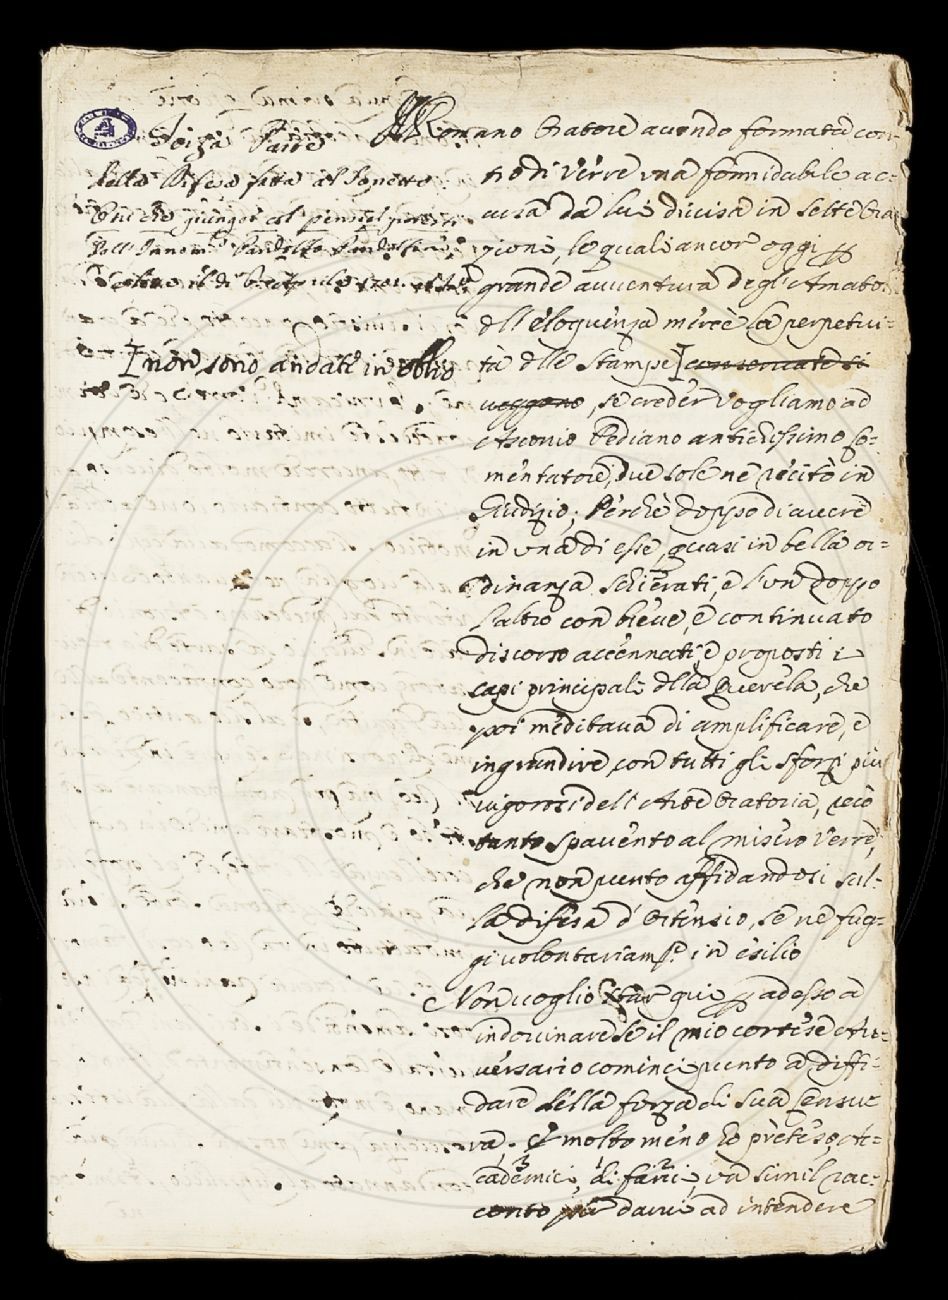 Terza Parte
Della Difesa fatta al Sonetto
non sono andate in oblio
Il Romano Oratore avendo formata con-
tro di Verre una formidabile ac-
cusa da lui divisa in sette Ora-
zioni, le quali ancor oggi p
grande avventura degl'Amatori
dell'eloquenza mercè la perpetui-
tà delle Stampe conservate si
veggono, se creder vogliamo ad
Asconio Pediano antichissimo Co-
mentatore, due sole ne recitò in
Giudizio; Perchè doppo di avere
in una di esse, quasi in bella or-
dinanza schierati, e l'un doppo
l'altro con breve, e continuato
discorso accennati, e proposti i
capi principali della Querela, che
poi meditava di amplificare, e
ingrandire con tutti gli sforzi più
vigorosi dell'Arte Oratoria, recò
tanto spavento al misero Verre,
che non punto affidandosi sul-
la difesa d'Ortensio, se ne fug-
gì volontariamte in esilio
Non voglio star qui p adesso a
indovinare se il mio cortese Av-
versario cominci punto a diffi-
dare della forza di sua
molto meno ho preteso, Ac-
cademici, di farvi, un simil rac-
conto per darvi ad intendere